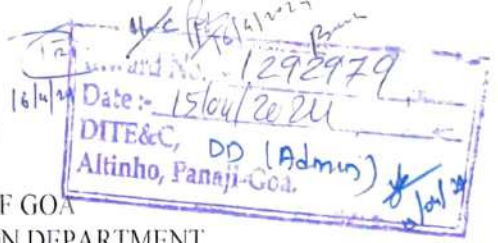 16/4/2024
Inward No. :- 1292979
16/4/24
Date :- 15/04/2024
DITE&C, DD (Admin)
Altinho, Panaji-Goa.
F GOA
N DEPARTMENT